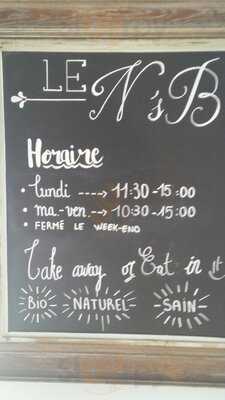 LE N'sB
Horaire
• lundi ----> 11:30-15:00
• ma.-ven. --> 10:30-15:00
• FERMÉ LE WEEK-END
Take away or Eat in it
BIO NATUREL SAIN